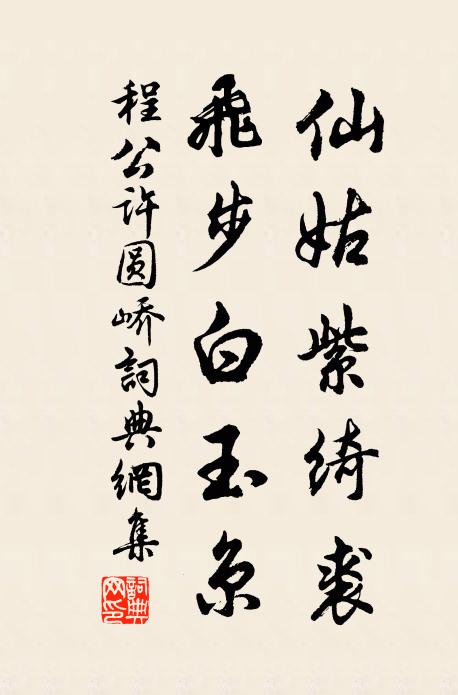 仙姑紫綺裘
飛步白玉京
程公许圓峤詞典網集
詞典网印